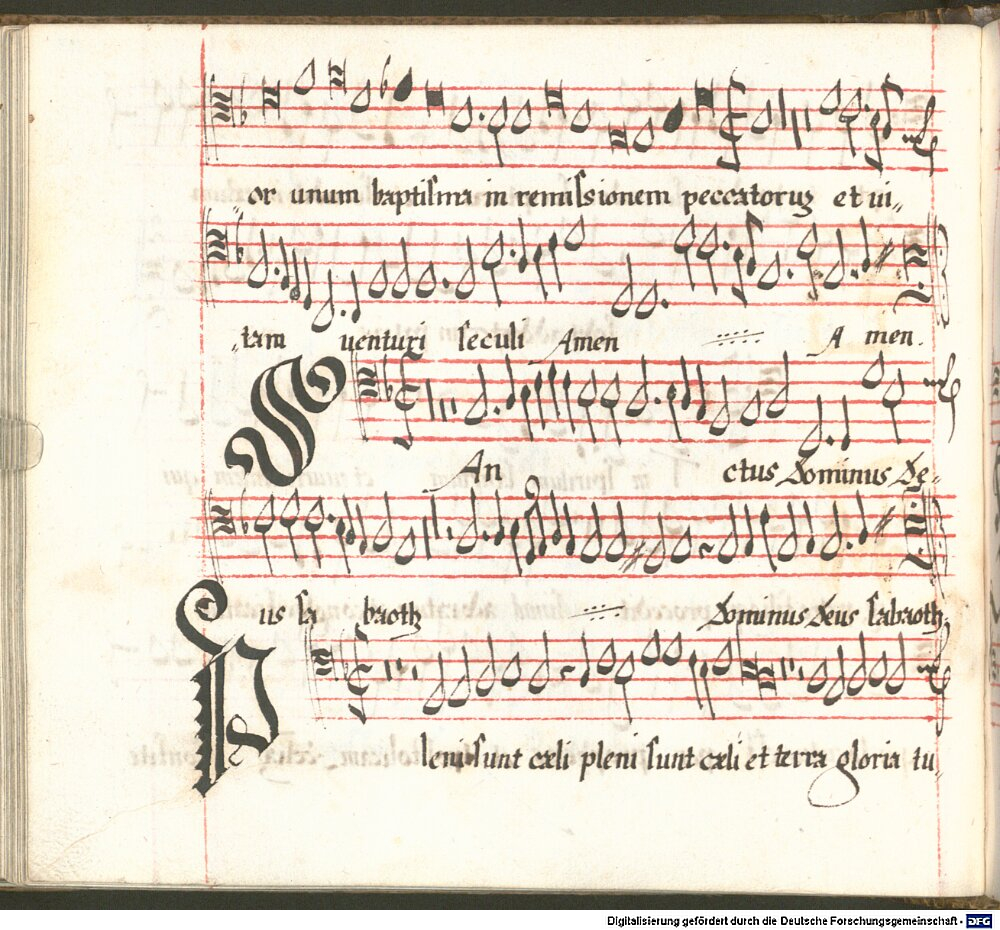 or unum baptisma in remissionem peccatoruz et ui„
„tam uenturi seculi Amen A men.
SAn ctus Dominus De„
us sa baoth Dominus Deus sabaoth
Pleni sunt cæli pleni sunt cæli et terra gloria tu„
Digitalisierung gefördert durch die Deutsche Forschungsgemeinschaft - DFG